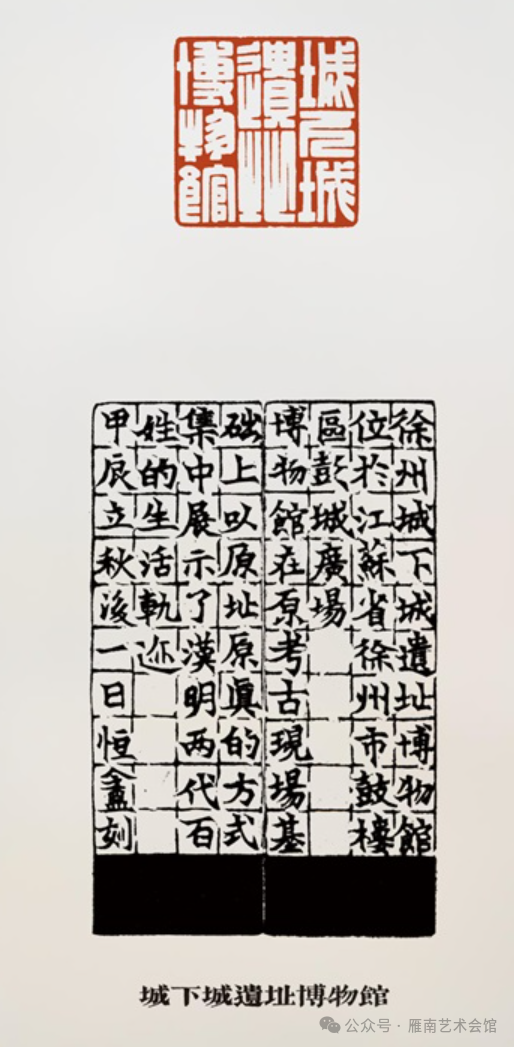 城下城
遺址
博物館
徐州城下城遺址博物館
位於江蘇省徐州市鼓樓
區彭城廣場
博物館在原考古現場基
础上以原址原眞的方式
集中展示了漢明两代百
姓的生活軌迹
甲辰立秋後一日恒盦刻
城下城遺址博物館
公众号 · 雁南艺术会馆